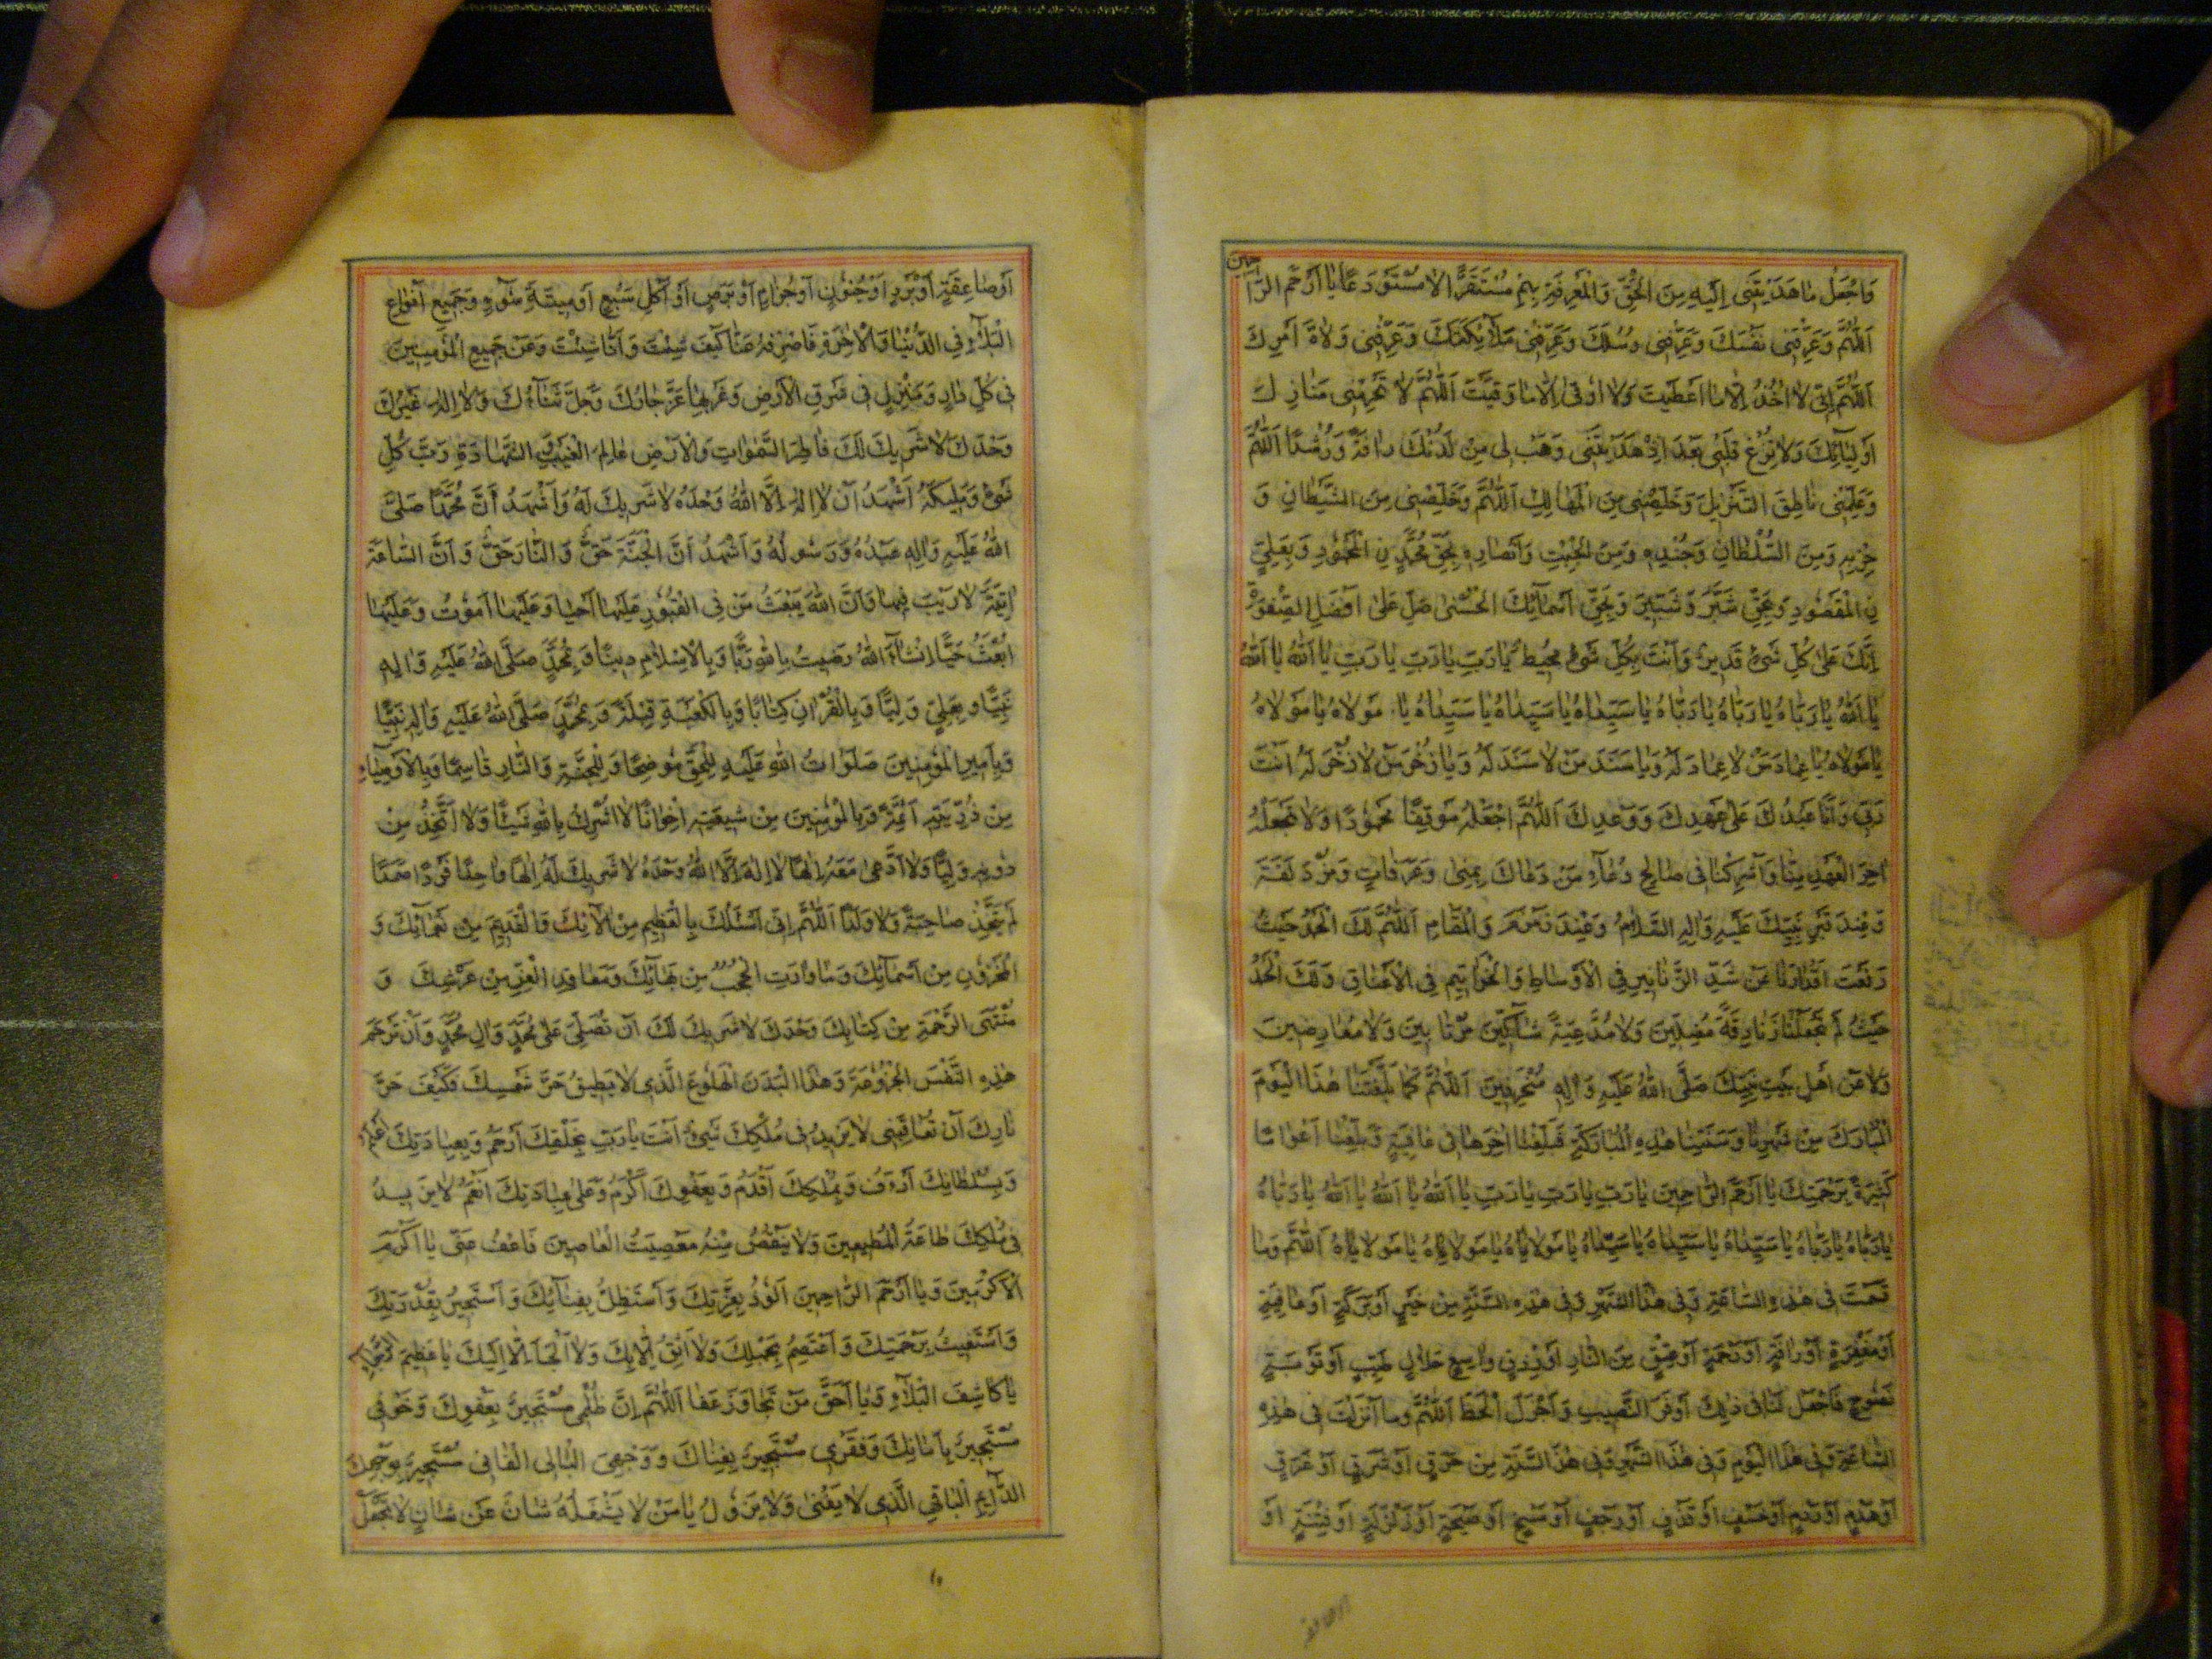 وَاجْعَلْ مَا هَدَيْتَنِي إِلَيْهِ مِنَ الْحَقِّ وَالْمَعْرِفَةِ بِهِمْ مُسْتَقَرًّا لَا مُسْتَوْدَعًا يَا أَرْحَمَ الرَّاحمين
اَللّٰهُمَّ وَعَرِّفْنِي نَفْسَكَ وَعَرِّفْنِي رُسُلَكَ وَعَرِّفْنِي مَلَآئِكَتَكَ وَعَرِّفْنِي وُلَاةَ اَمْرِكَ
اَللّٰهُمَّ اِنِّي لَا اٰخُذُ اِلَّا مَا اَعْطَيْتَ وَلَا اُوقٰى اِلَّا مَا وَقَيْتَ اَللّٰهُمَّ لَا تَحْرِمْنِي مَنَازِلَ
اَوْلِيَآئِكَ وَلَا تُزِغْ قَلْبِي بَعْدَ اِذْ هَدَيْتَنِي وَهَبْ لِي مِنْ لَدُنْكَ رَافَةً وَرُشْدًا اَللّٰهُمَّ
وَعَلِّمْنِي نَاطِقَ التَّنْزِيلِ وَخَلِّصْنِي مِنَ الْمَهَالِكِ اَللّٰهُمَّ وَخَلِّصْنِي مِنَ الشَّيْطَانِ وَ
حِزْبِهِ وَمِنَ السُّلْطَانِ وَجُنْدِهِ وَمِنَ الْجِبْتِ وَاَنْصَارِهِ بِحَقِّ مُحَمَّدٍ نِ الْمَحْمُودِ وَبِعَلِيٍّ
نِ الْمَقْصُودِ وَبِحَقِّ شَبَّرَ وَشَبِيرَ وَبِحَقِّ اَسْمَآئِكَ الْحُسْنٰى صَلِّ عَلٰى اَفْضَلِ الصَّفْوَةِ
اِنَّكَ عَلٰى كُلِّ شَيْءٍ قَدِيرٌ وَاَنْتَ بِكُلِّ شَيْءٍ مُحِيطٌ يَا رَبِّ يَا رَبِّ يَا رَبِّ يَا اَللّٰهُ يَا اَللّٰهُ
يَا اَللّٰهُ يَا رَبَّاهُ يَا رَبَّاهُ يَا رَبَّاهُ يَا سَيِّدَاهُ يَا سَيِّدَاهُ يَا سَيِّدَاهُ يَا مَوْلَاهُ يَا مَوْلَاهُ
يَا مَوْلَاهُ يَا عِمَادَ مَنْ لَا عِمَادَ لَهُ وَيَا سَنَدَ مَنْ لَا سَنَدَ لَهُ وَيَا ذُخْرَ مَنْ لَا ذُخْرَ لَهُ اَنْتَ
رَبِّي وَاَنَا عَبْدُكَ عَلٰى عَهْدِكَ وَوَعْدِكَ اَللّٰهُمَّ اجْعَلْهُ مَوْقِفًا مَحْمُودًا وَلَا تَجْعَلْهُ
اٰخِرَ الْعَهْدِ مِنَّا وَاَشْرِكْنَا فِي صَالِحِ دُعَآءِ مَنْ دَعَاكَ بِمِنٰى وَعَرَفَاتٍ وَمُزْدَلَفَةَ
وَعِنْدَ قَبْرِ نَبِيِّكَ عَلَيْهِ وَاٰلِهِ السَّلَامُ وَعِنْدَ زَمْزَمَ وَالْمَقَامِ اَللّٰهُمَّ لَكَ الْحَمْدُ حَيْثُ
رَفَعْتَ اَقْدَارَنَا عَنْ شَدِّ الزَّنَانِيرِ فِي الْاَوْسَاطِ وَالْخَوَاتِيمِ فِي الْاَعْنَاقِ وَلَكَ الْحَمْدُ
حَيْثُ لَمْ تَجْعَلْنَا زَنَادِقَةً مُضِلِّينَ وَلَا مُدَّعِيَةً شَاكِّينَ مُرْتَابِينَ وَلَا مُعَارِضِينَ
وَلَا عَنْ اَهْلِ بَيْتِ نَبِيِّكَ صَلَّى اللّٰهُ عَلَيْهِ وَاٰلِهِ مُنْحَرِفِينَ اَللّٰهُمَّ كَمَا بَلَّغْتَنَا هٰذَا الْيَوْمَ
الْمُبَارَكَ مِنْ شَهْرِنَا وَسَنَتِنَا هٰذِهِ الْمُبَارَكَةِ فَبَلِّغْنَا اٰخِرَهَا فِي عَافِيَةٍ وَبَلِّغْنَا اَعْوَامًا
كَثِيرَةً بِرَحْمَتِكَ يَا اَرْحَمَ الرَّاحِمِينَ يَا رَبِّ يَا رَبِّ يَا رَبِّ يَا اَللّٰهُ يَا اَللّٰهُ يَا اَللّٰهُ يَا رَبَّاهُ
يَا رَبَّاهُ يَا رَبَّاهُ يَا سَيِّدَاهُ يَا سَيِّدَاهُ يَا سَيِّدَاهُ يَا مَوْلَايَاهُ يَا مَوْلَايَاهُ يَا مَوْلَايَاهُ اَللّٰهُمَّ وَمَا
قَسَمْتَ فِي هٰذِهِ السَّاعَةِ وَفِي هٰذَا الشَّهْرِ وَفِي هٰذِهِ السَّنَةِ مِنْ خَيْرٍ اَوْ بَرَكَةٍ اَوْ عَافِيَةٍ
اَوْ مَغْفِرَةٍ اَوْ رَافَةٍ اَوْ رَحْمَةٍ اَوْ عِتْقٍ مِنَ النَّارِ اَوْ رِزْقٍ وَاسِعٍ حَلَالٍ طَيِّبٍ اَوْ تَوْبَةٍ
نَصُوحٍ فَاجْعَلْ لَنَا فِي ذٰلِكَ اَوْفَرَ النَّصِيبِ وَاَجْزَلَ الْحَظِّ اَللّٰهُمَّ وَمَا اَنْزَلْتَ فِي هٰذِهِ
السَّاعَةِ وَفِي هٰذَا الْيَوْمِ وَفِي هٰذَا الشَّهْرِ وَفِي هٰذِهِ السَّنَةِ مِنْ حَرَقٍ اَوْ شَرَقٍ اَوْ غَرَقٍ
اَوْ هَدْمٍ اَوْ رَدْمٍ اَوْ خَسْفٍ اَوْ قَذْفٍ اَوْ رَجْفٍ اَوْ مَسْخٍ اَوْ صَيْحَةٍ اَوْ زَلْزَلَةٍ اَوْ فِتْنَةٍ اَوْ
اَوْ صَاعِقَةٍ اَوْ بَرَدٍ اَوْ جُنُونٍ اَوْ جُذَامٍ اَوْ بَرَصٍ اَوْ اَكْلِ سَبُعٍ اَوْ مِيتَةِ سُوْءٍ وَجَمِيعِ اَنْوَاعِ
الْبَلَآءِ فِي الدُّنْيَا وَالْاٰخِرَةِ فَاصْرِفْهُ عَنَّا كَيْفَ شِئْتَ وَاَنّٰى شِئْتَ وَعَنْ جَمِيعِ الْمُؤْمِنِينَ
فِي كُلِّ دَارٍ وَمَنْزِلٍ فِي شَرْقِ الْاَرْضِ وَغَرْبِهَا عَزَّ جَارُكَ وَجَلَّ ثَنَآءُكَ وَلَا اِلٰهَ غَيْرُكَ
وَحْدَكَ لَا شَرِيكَ لَكَ فَاطِرَ السَّمٰوَاتِ وَالْاَرْضِ عَالِمَ الْغَيْبِ وَالشَّهَادَةِ رَبَّ كُلِّ
شَيْءٍ وَمَلِيكَهُ اَشْهَدُ اَنْ لَا اِلٰهَ اِلَّا اللّٰهُ وَحْدَهُ لَا شَرِيكَ لَهُ وَاَشْهَدُ اَنَّ مُحَمَّدًا صَلَّى
اللّٰهُ عَلَيْهِ وَاٰلِهِ عَبْدُهُ وَرَسُولُهُ وَاَشْهَدُ اَنَّ الْجَنَّةَ حَقٌّ وَالنَّارَ حَقٌّ وَاَنَّ السَّاعَةَ
اٰتِيَةٌ لَا رَيْبَ فِيهَا وَاَنَّ اللّٰهَ يَبْعَثُ مَنْ فِي الْقُبُورِ عَلَيْهَا اَحْيَا وَعَلَيْهَا اَمُوتُ وَعَلَيْهَا
اُبْعَثُ حَيًّا اِنْشَآءَ اللّٰهُ رَضِيتُ بِاللّٰهِ رَبًّا وَبِالْاِسْلَامِ دِينًا وَبِمُحَمَّدٍ صَلَّى اللّٰهُ عَلَيْهِ وَاٰلِهِ
نَبِيًّا وَبِعَلِيٍّ وَلِيًّا وَبِالْقُرْاٰنِ كِتَابًا وَبِالْكَعْبَةِ قِبْلَةً وَبِمُحَمَّدٍ صَلَّى اللّٰهُ عَلَيْهِ وَاٰلِهِ نَبِيًّا
وَبِاَمِيرِ الْمُؤْمِنِينَ صَلَوَاتُ اللّٰهِ عَلَيْهِ لِلْحَقِّ مُوضِحًا وَلِلْجَنَّةِ وَالنَّارِ قَاسِمًا وَبِالْاَوْصِيَآءِ
مِنْ ذُرِّيَّتِهِ اَئِمَّةً وَبِالْمُؤْمِنِينَ مِنْ شِيعَتِهِ اِخْوَانًا لَا اُشْرِكُ بِاللّٰهِ شَيْئًا وَلَا اَتَّخِذُ مِنْ
دُونِهِ وَلِيًّا وَلَا اَدَّعِي مَعَهُ اِلٰهًا لَا اِلٰهَ اِلَّا اللّٰهُ وَحْدَهُ لَا شَرِيكَ لَهُ اِلٰهًا وَاحِدًا فَرْدًا صَمَدًا
لَمْ يَتَّخِذْ صَاحِبَةً وَلَا وَلَدًا اَللّٰهُمَّ اِنِّي اَسْئَلُكَ بِالْعَظِيمِ مِنْ اٰلَائِكَ وَالْقَدِيمِ مِنْ نَعْمَآئِكَ وَ
الْمَخْزُونِ مِنْ اَسْمَآئِكَ وَمَا وَارَتِ الْحُجُبُ مِنْ بَهَآئِكَ وَمَعَاقِدِ الْعِزِّ مِنْ عَرْشِكَ وَ
مُنْتَهَى الرَّحْمَةِ مِنْ كِتَابِكَ وَحْدَكَ لَا شَرِيكَ لَكَ اَنْ تُصَلِّيَ عَلٰى مُحَمَّدٍ وَاٰلِ مُحَمَّدٍ وَاَنْ تَرْحَمَ
هٰذِهِ النَّفْسَ الْجَزُوعَةَ وَهٰذَا الْبَدَنَ الْهَلُوعَ الَّذِي لَا يُطِيقُ حَرَّ شَمْسِكَ فَكَيْفَ حَرَّ
نَارِكَ اَنْ تُعَاقِبَنِي لَا يَزِيدُ فِي مُلْكِكَ شَيْءٌ اَنْتَ يَا رَبِّ بِخَلْقِكَ اَرْحَمُ وَبِعِبَادَتِكَ
وَبِسُلْطَانِكَ اَرْءَفُ وَبِمُلْكِكَ اَقْدَمُ وَبِعَفْوِكَ اَكْرَمُ وَعَلٰى عِبَادَتِكَ اَنْعَمُ لَا يَزِيدُ
فِي مُلْكِكَ طَاعَةُ الْمُطِيعِينَ وَلَا يَنْقُصُ مِنْهُ مَعْصِيَتُ الْعَاصِينَ فَاعْفُ عَنِّي يَا اَكْرَمَ
الْاَكْرَمِينَ وَيَا اَرْحَمَ الرَّاحِمِينَ اَلُوذُ بِعِزَّتِكَ وَاَسْتَظِلُّ بِفِنَآئِكَ وَاَسْتَجِيرُ بِقُدْرَتِكَ
وَاَسْتَغِيثُ بِرَحْمَتِكَ وَاَعْتَصِمُ بِحَبْلِكَ وَلَا اَثِقُ اِلَّا بِكَ وَلَا اَلْجَاُ اِلَّا اِلَيْكَ يَا عَظِيمَ
يَا كَاشِفَ الْبَلَآءِ وَيَا اَحَقَّ مَنْ تَجَاوَزَ وَعَفَا اَللّٰهُمَّ اِنَّ ظُلْمِي مُسْتَجِيرٌ بِعَفْوِكَ وَخَوْفِي
مُسْتَجِيرٌ بِاَمَانِكَ وَفَقْرِي مُسْتَجِيرٌ بِغِنَاكَ وَوَجْهِيَ الْبَالِي الْفَانِي مُسْتَجِيرٌ بِوَجْهِكَ
الدَّآئِمِ الْبَاقِي الَّذِي لَا يَفْنٰى وَلَا يَزُولُ يَا مَنْ لَا يَشْغَلُهُ شَانٌ عَنْ شَانٍ لَا تَجْعَلْ